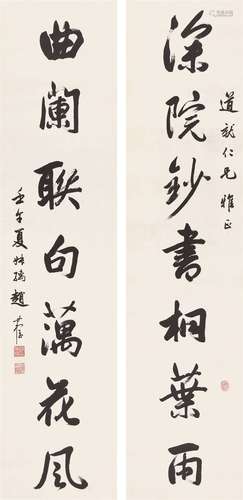 道龍仁兄雅正
深院鈔書桐葉雨
曲闌聯句藕花風
壬午夏 趙